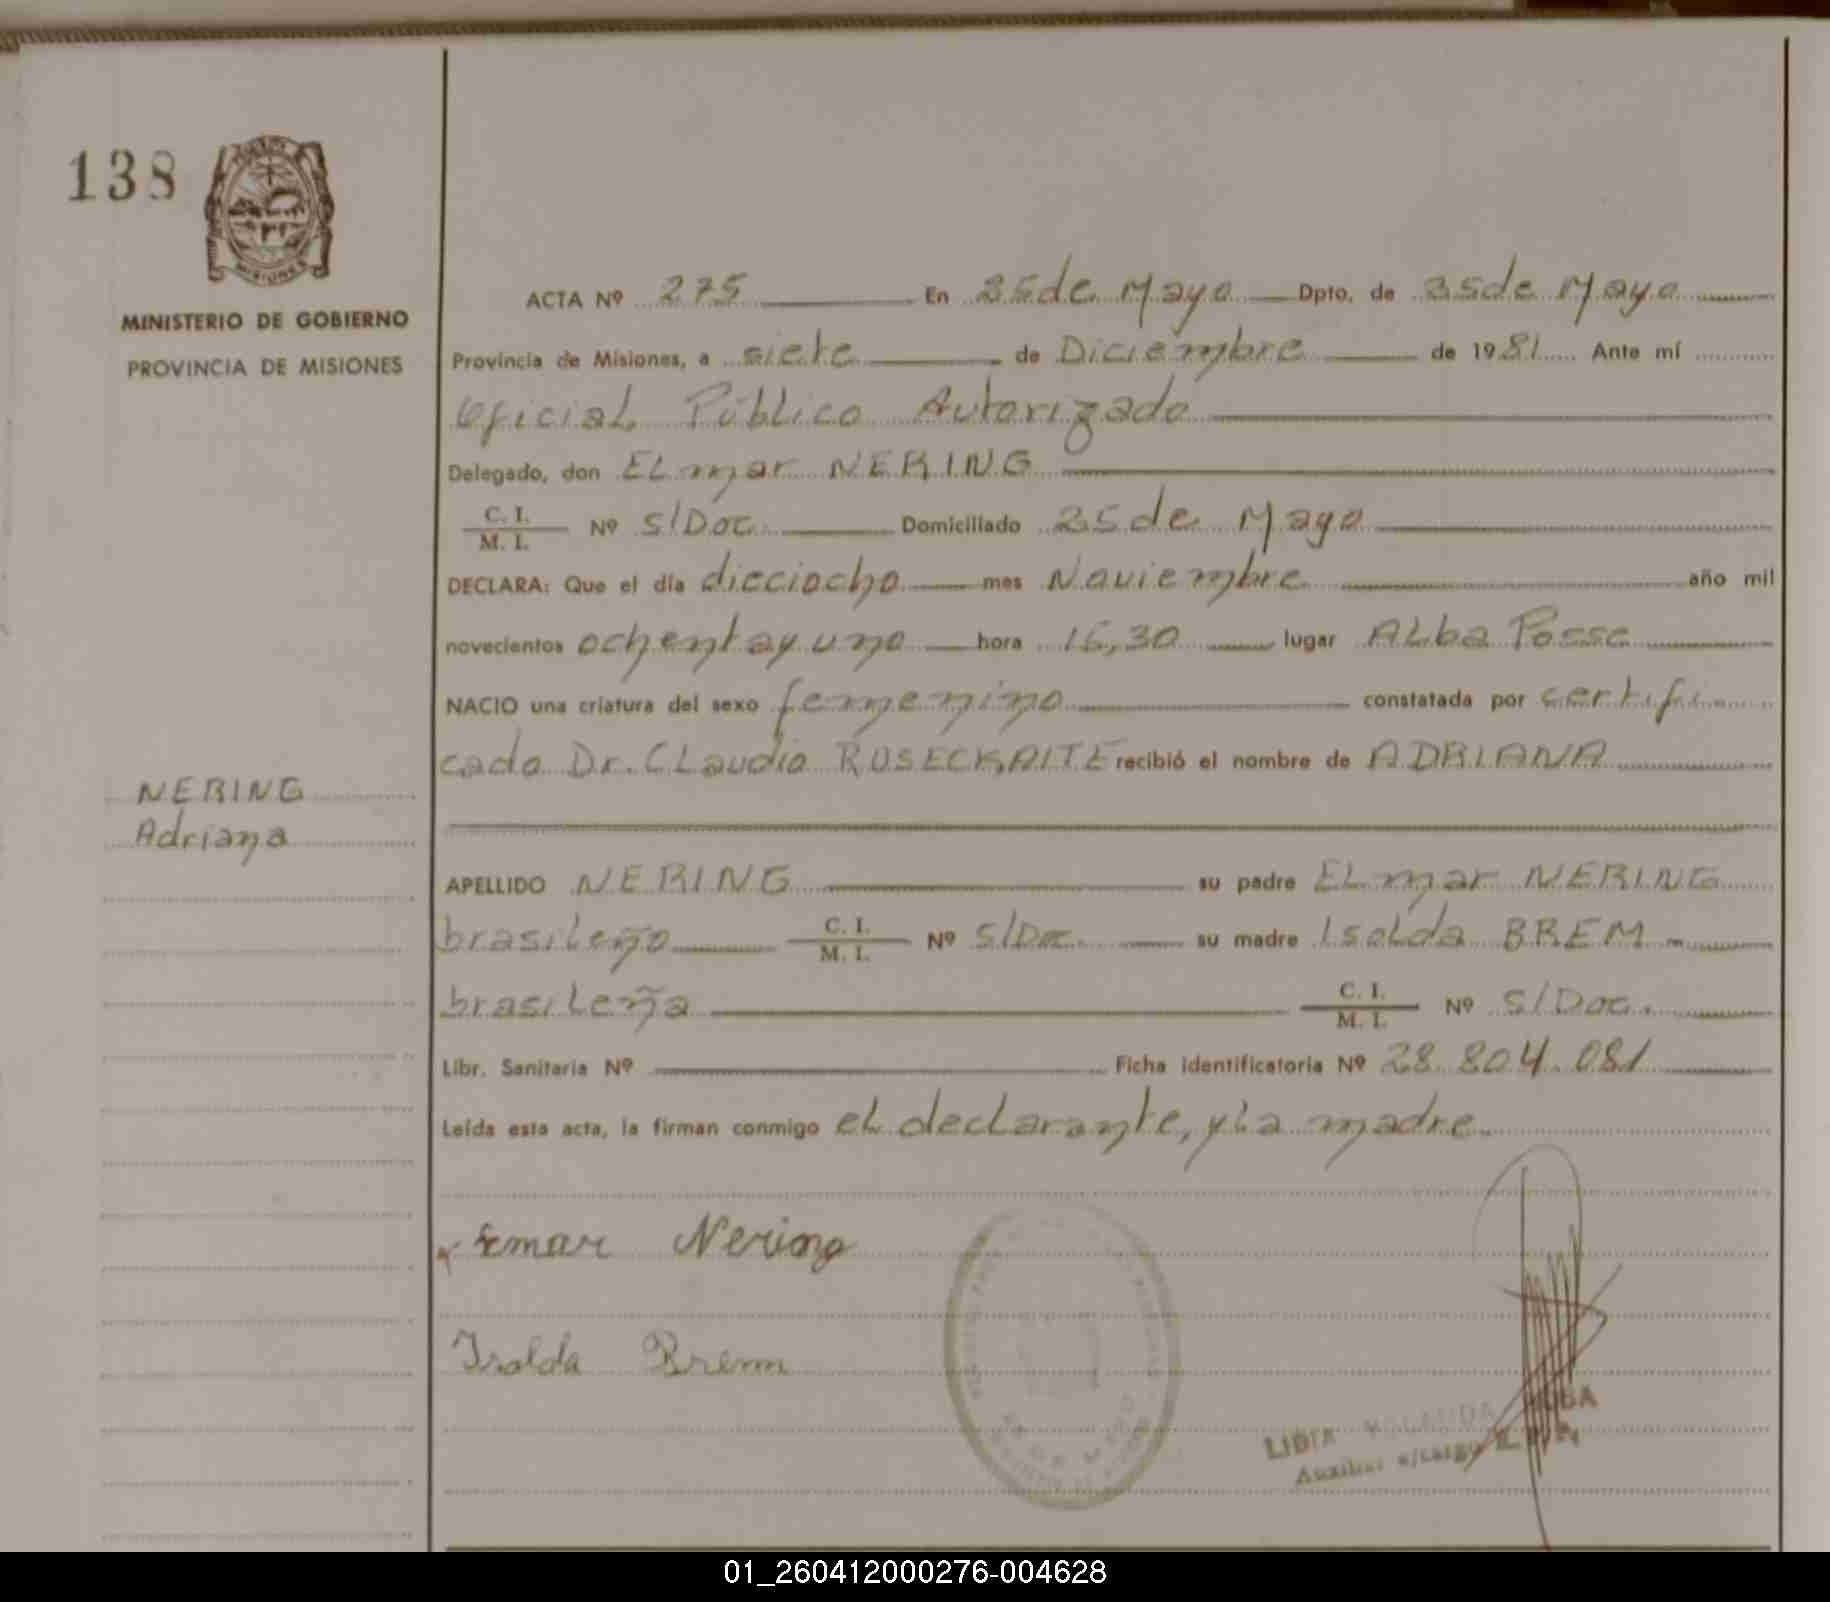 138
MISIONES
MINISTERIO DE GOBIERNO
PROVINCIA DE MISIONES
NERING
Adriana
ACTA Nº 275 En 25 de Mayo Dpto. de 25 de Mayo
Provincia de Misiones, a siete de Diciembre de 1981 Ante mí
Oficial Público Autorizado
Delegado, don ELmar NERING
C. I. / M. I. Nº S/Doc. Domiciliado 25 de Mayo
DECLARA: Que el día dieciocho mes Noviembre año mil
novecientos ochenta y uno hora 16,30 lugar ALba Posse
NACIO una criatura del sexo femenino constatada por certifi
cado Dr. CLaudio ROSECKAITE recibió el nombre de ADRIANA
APELLIDO NERING su padre ELmar NERING
brasileño C. I. / M. I. Nº S/Doc. su madre IsoLda BREM
brasileña C. I. / M. I. Nº S/Doc.
Libr. Sanitaria Nº Ficha identificatoria Nº 28.804.081
Leída esta acta, la firman conmigo eL declarante, y la madre.
Emar Nering
Isolda Brem
LIDIA
Auxiliar a/cargo
01_260412000276-004628